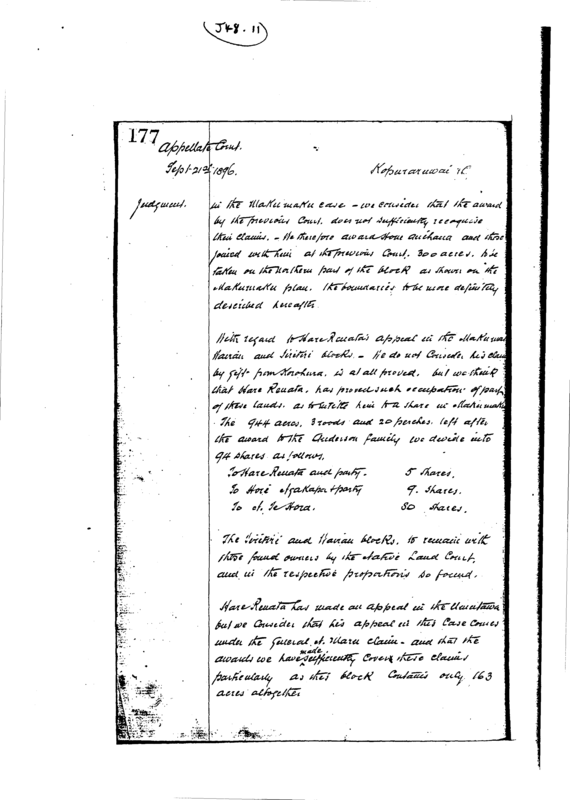 J48.11
177
Appellate Court.
Sept. 21st 1896.
Kopuraruwai &c.
Judgment.
in the Makumaku case – we consider that the award
by the previous Court, does not sufficiently recognise
their claims. – We therefore award Hone and those
joined with him at the previous Court, 300 acres, to be
taken on the Northern part of the block as shown on the
Makumaku plan. The boundaries to be more definitely
described hereafter
With regard to Hare Renata's appeal in the
and blocks. – We do not Consider his claim
by gift from is at all proved. but we think
that Hare Renata, has proved such occupation of part
of these lands, as to entitle him to a share in Makumaku
The 944 acres, 3 roods and 20 perches, left after
the award to the Anderson family we divide into
94 shares as follows,
To Hare Renata and party. 5 shares,
To Hori Ngakapa & party 9. shares.
To N. Te Hora. 80 shares.
The and blocks, to remain with
those found owners by the Native Land Court,
and in the respective proportions so found.
Hare Renata has made an appeal in the
but we Consider that his appeal in this Case comes
under the General N. Maru claim – and that the
awards we have made sufficiently Cover these claims
particularly as this block Contains only 163
acres altogether